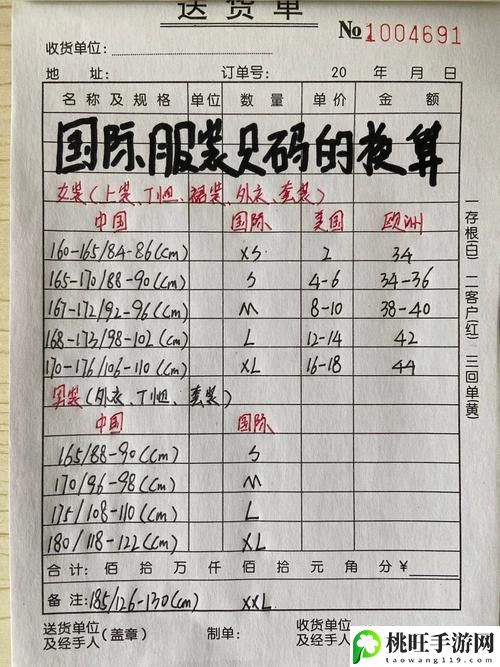 送货单
№1004691
收货单位:
地 址: 订单号: 20 年 月 日
名称及规格 单位 数量 单价 金额
国际服装尺码的换算
女装(上装、T恤、裙装、外衣、套装)
中国 国际 美国 欧洲
160-165/84-86(cm) XS 2 34
165-170/88-90(cm) S 4-6 34-36
167-172/92-96(cm) M 8-10 38-40
168-173/98-102(cm) L 12-14 42
170-176/106-110(cm) XL 16-18 44
男装(外衣、T恤、套装)
中国 国际
165/88-90(cm) S
170/96-98(cm) M
175/108-110(cm) L
180/118-122(cm) XL
合计: 佰 拾 万 仟 佰 拾 元 角 分¥
备注: 185/126-130(cm) XXL
送货单位及经手人(盖章) 制单: 收货单位及经手人
一存根(白) 二客户(红) 三回单(黄)
桃旺手游网
taowang119.com